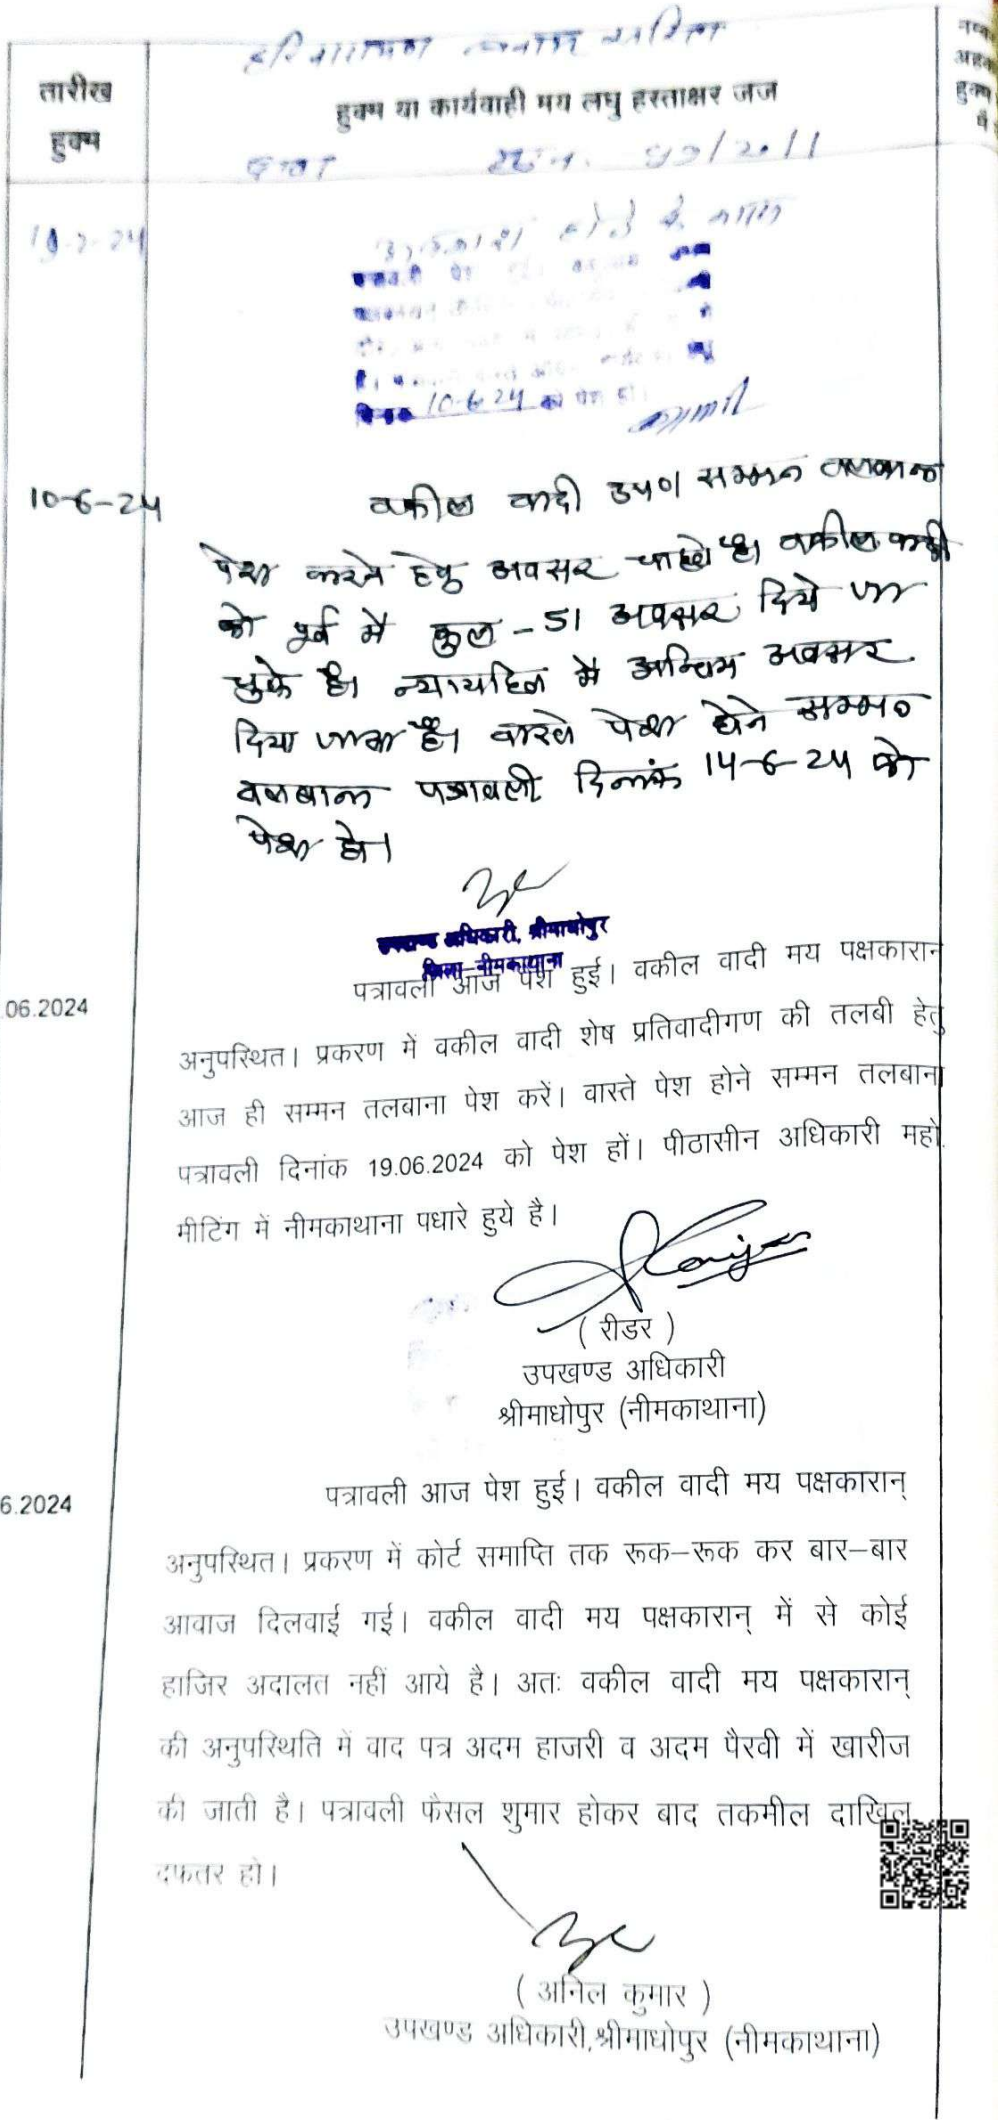 हरिनारायण बनाम
तारीख
हुक्म
हुक्म या कार्यवाही मय लघु हस्ताक्षर जज
दावा 47/2011
पेश
दिनांक 10-6-24 को पेश हो।
10-6-24
वकील वादी उप0। सम्मन तलबाना
पेश करने हेतु अवसर चाहते है। वकील वादी
को पूर्व में कुल - 51 अवसर दिये जा
चुके है। न्यायहित में अन्तिम अवसर
दिया जाता है। वास्ते पेश होने सम्मन
तलबाना पत्रावली दिनांक 14-6-24 को
पेश हो।
उपखण्ड अधिकारी, श्रीमाधोपुर
जिला-नीमकाथाना
.06.2024
पत्रावली आज पेश हुई। वकील वादी मय पक्षकारान
अनुपस्थित। प्रकरण में वकील वादी शेष प्रतिवादीगण की तलबी हेतु
आज ही सम्मन तलबाना पेश करें। वास्ते पेश होने सम्मन तलबाना
पत्रावली दिनांक 19.06.2024 को पेश हों। पीठासीन अधिकारी महो
मीटिंग में नीमकाथाना पधारे हुये है।
( रीडर )
उपखण्ड अधिकारी
श्रीमाधोपुर (नीमकाथाना)
6.2024
पत्रावली आज पेश हुई। वकील वादी मय पक्षकारान्
अनुपस्थित। प्रकरण में कोर्ट समाप्ति तक रूक–रूक कर बार–बार
आवाज दिलवाई गई। वकील वादी मय पक्षकारान् में से कोई
हाजिर अदालत नहीं आये है। अतः वकील वादी मय पक्षकारान्
की अनुपस्थिति में वाद पत्र अदम हाजरी व अदम पैरवी में खारीज
की जाती है। पत्रावली फैसल शुमार होकर बाद तकमील दाखिल
दफतर हो।
( अनिल कुमार )
उपखण्ड अधिकारी,श्रीमाधोपुर (नीमकाथाना)